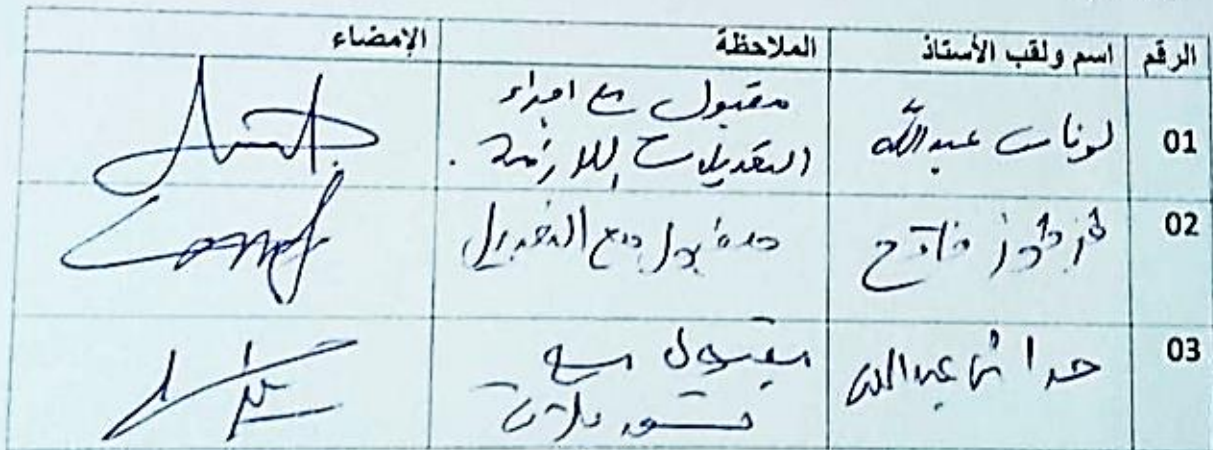 الرقم اسم ولقب الأستاذ الملاحظة الإمضاء
01 لوناس عبدالله مقبول مع اجراء
التعديلات اللازمة .
02 فاتح مقبول مع التعديل
03 عبدالله مقبول مع